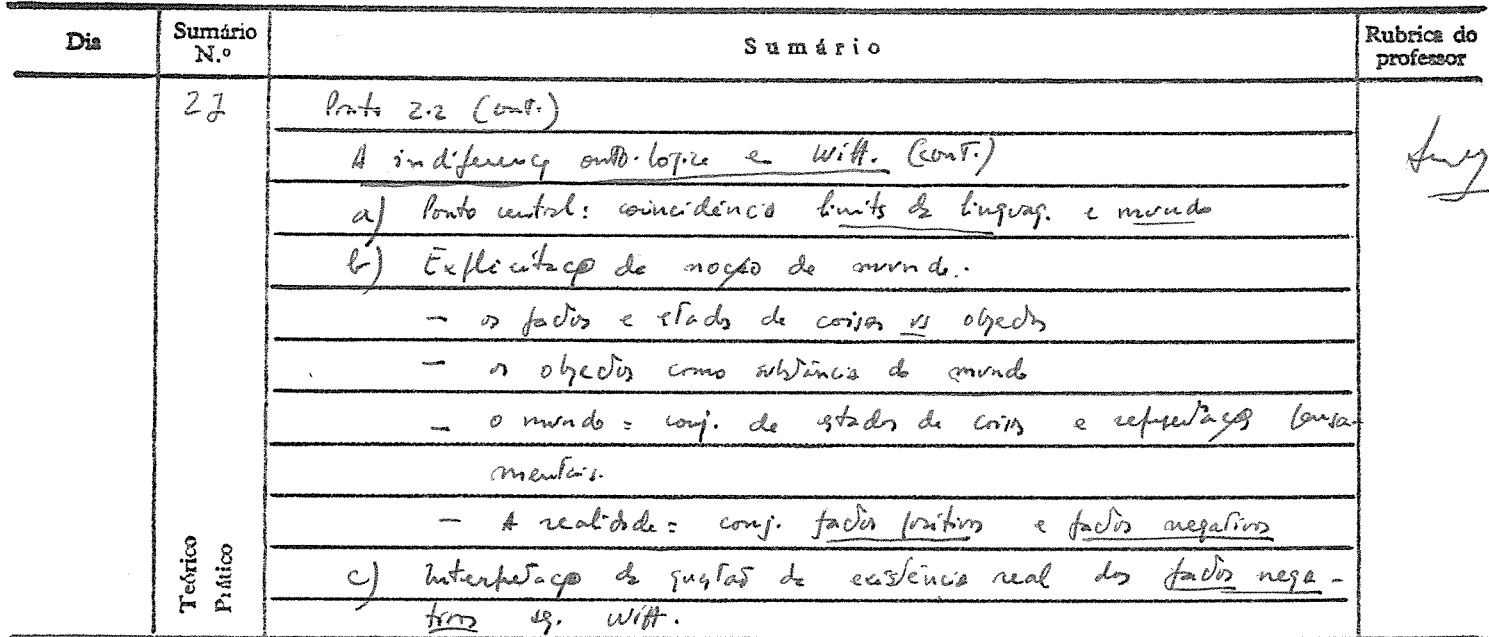 Dia Sumário N.º Sumário Rubrica do professor
27 Ponto 2.2 (cont.)
A indiferença ontológica e Witt. (cont.)
a) Ponto central: coincidência limits da linguag. e mundo
b) Explicitação da noção de mundo.
- os factos e estados de coisas vs objectos
- os objectos como substância do mundo
- o mundo = conj. de estados de coisas e representações pensa-
mentais.
- A realidade = conj. factos positivos e factos negativos
c) Interpretação da questão da existência real dos factos nega-
tivos sg. Witt.
Teórico
Prático